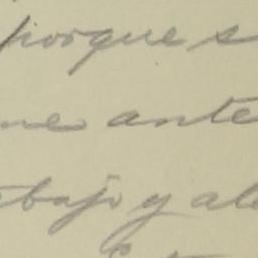 porque s
me ante
abajo y al